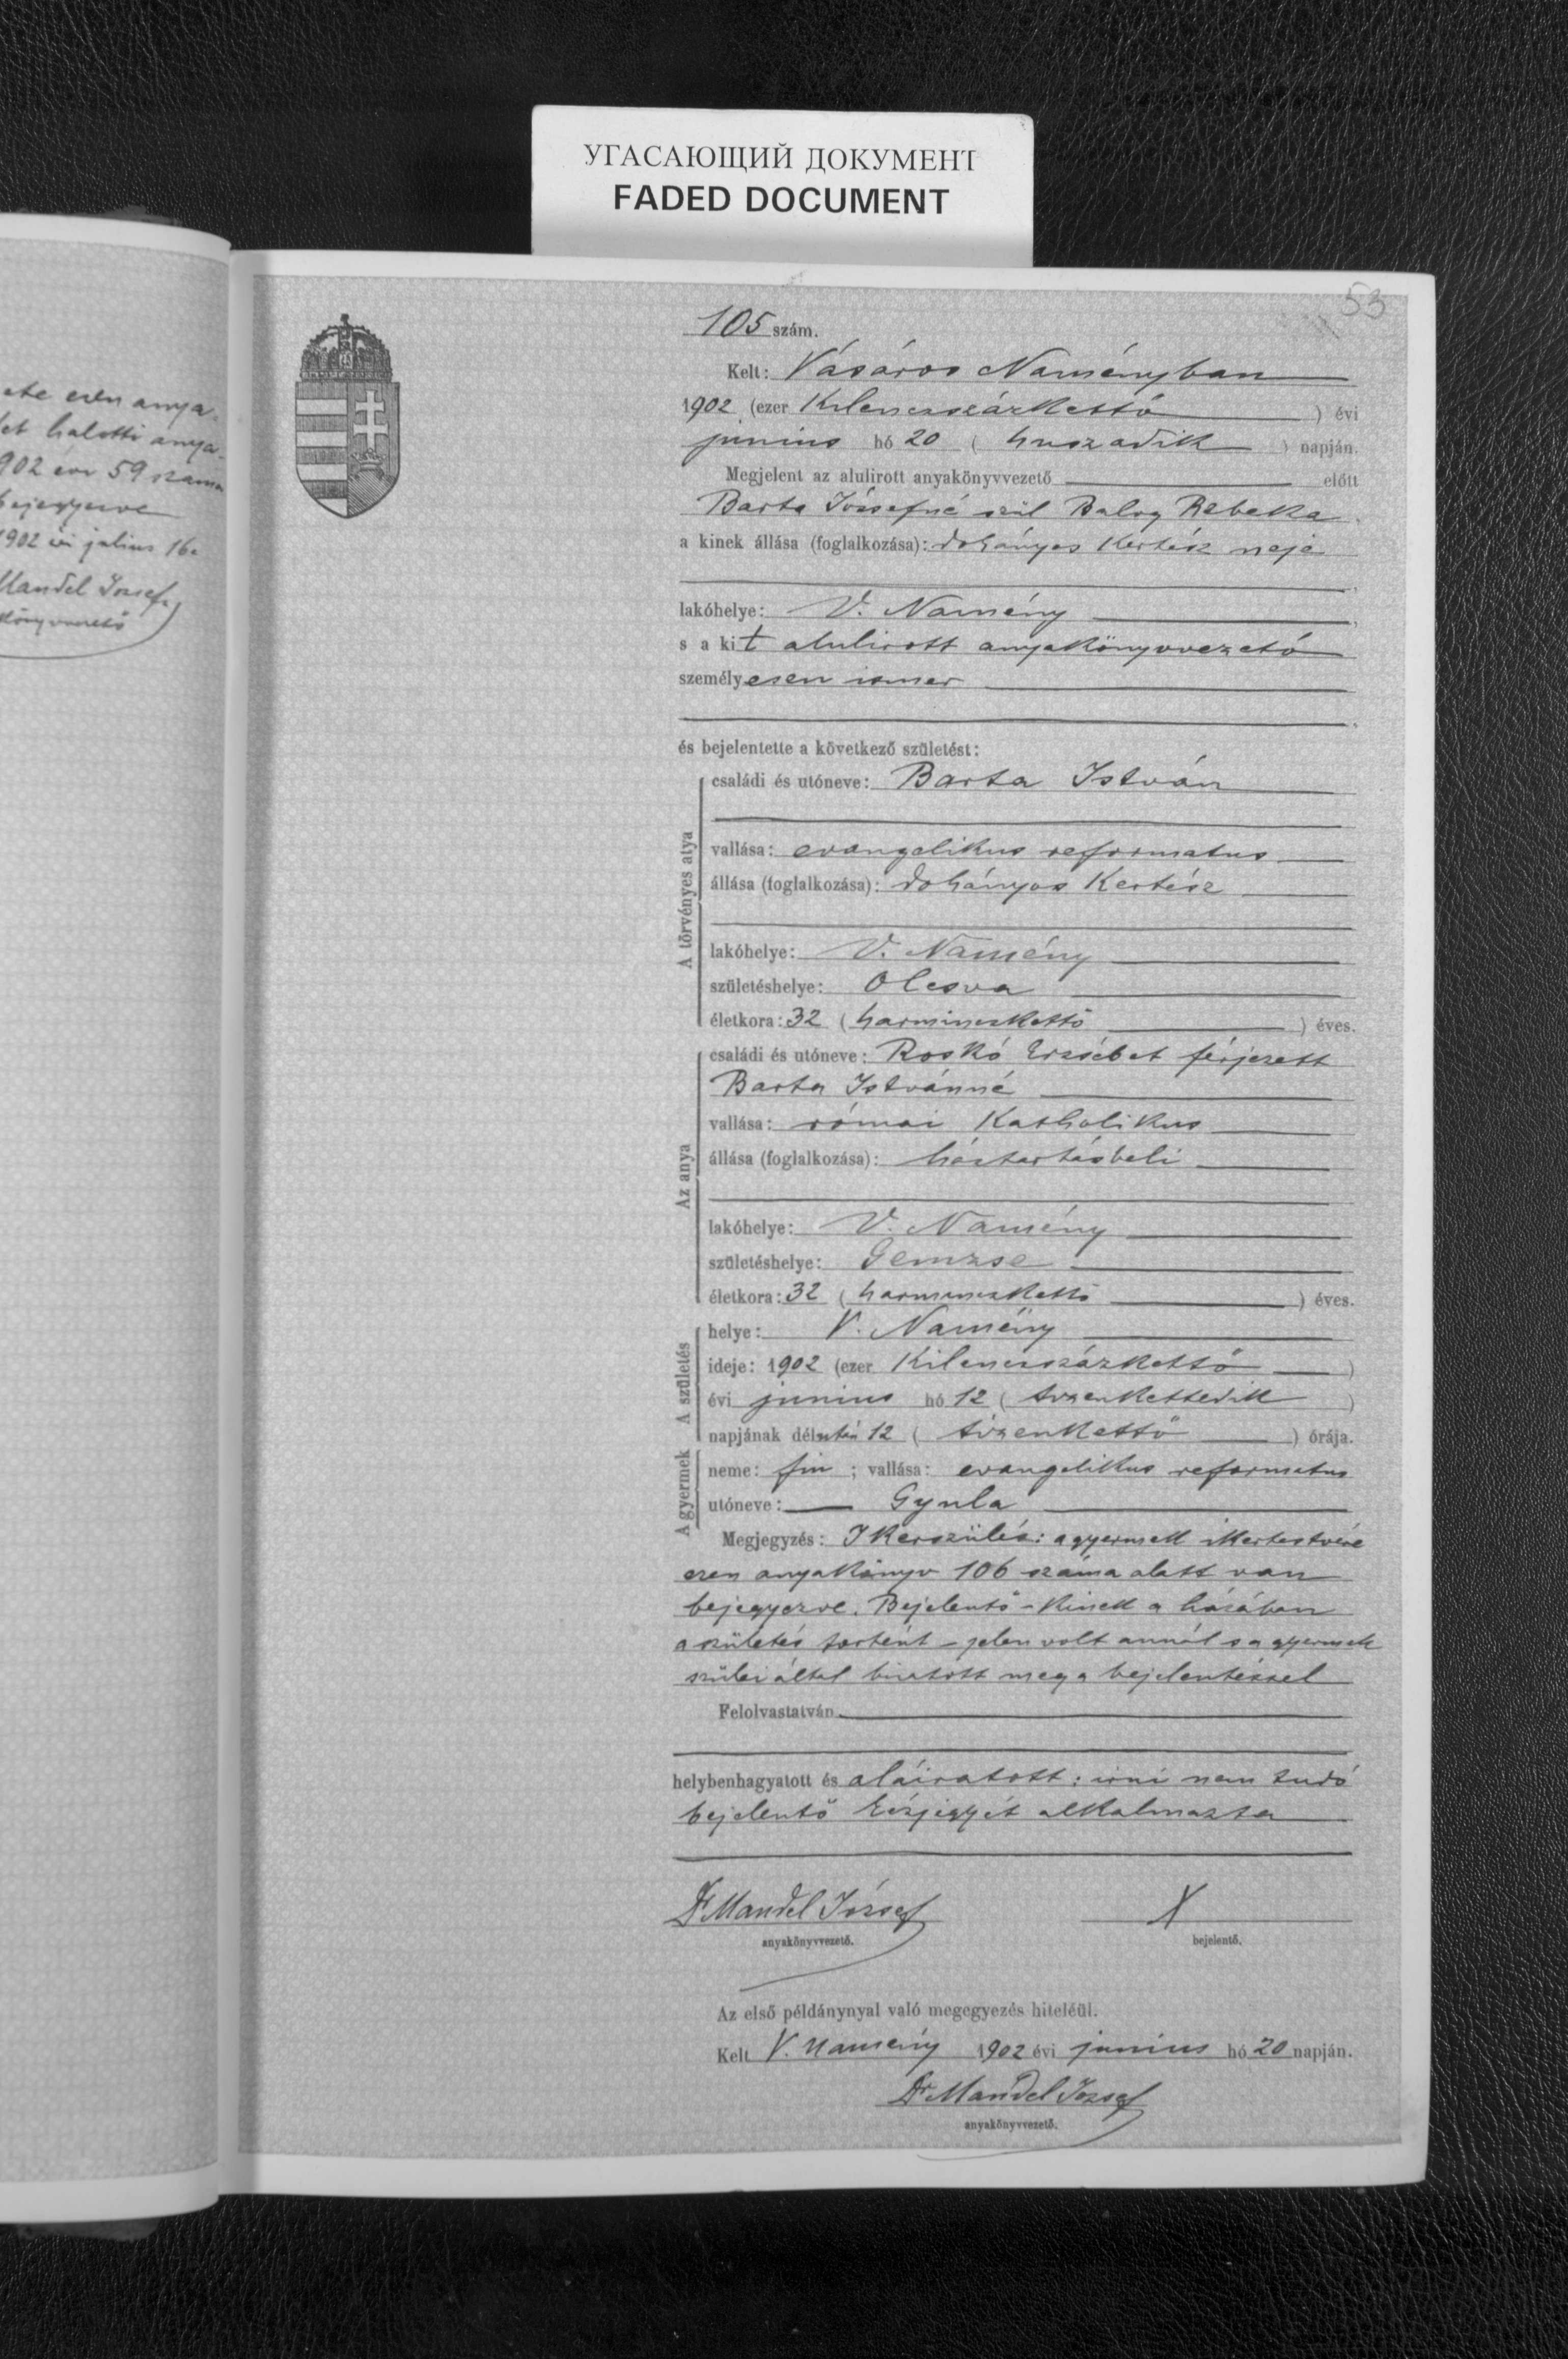 УГАСАЮЩИЙ ДОКУМЕНТ
FADED DOCUMENT
53
ezen anya-
halotti anya-
902 évi 59 szám
bejegyezve
1902 évi julius 16.
Mandel József
könyvvezető
105 szám.
Kelt: Vásáros Naményban
1902 (ezer Kilenczszázkettő ) évi
junius hó 20 ( huszadik ) napján.
Megjelent az alulirott anyakönyvvezető előtt
Barta Józsefné szül Balog Rebeka
a kinek állása (foglalkozása): dohányos Kertész neje
lakóhelye: V. Namény
s a kit alulirott anyakönyvvezető
személyesen ismer
és bejelentette a következő születést:
A törvényes atya
családi és utóneve: Barta István
vallása: evangelikus reformatus
állása (foglalkozása): dohányos Kertész
lakóhelye: V. Namény
születéshelye: Olcsva
életkora: 32 ( harminczkettő ) éves.
Az anya
családi és utóneve: Roskó Erzsébet férjezett
Barta Istvánné
vallása: római Katholikus
állása (foglalkozása): háztartásbeli
lakóhelye: V. Namény
születéshelye: Gemzse
életkora: 32 ( harminczkettő ) éves.
A születés
helye: V. Namény
ideje: 1902 (ezer Kilenczszázkettő )
évi junius hó 12 ( tizenkettedik )
napjának délután 12 ( tizenkettő ) órája.
A gyermek
neme: fiu ; vallása: evangelikus reformatus
utóneve: Gyula
Megjegyzés: Ikerszülés: a gyermek ikertestvére
ezen anyakönyv 106 száma alatt van
bejegyezve. Bejelentő - kinek a házában
a születés történt - jelen volt annál s a gyermek
szülei által bizatott meg a bejelentéssel
Felolvastatván
helybenhagyatott és aláiratott; irni nem tudó
bejelentő kézjegyét alkalmazta
Dr Mandel József X
anyakönyvvezető. bejelentő.
Az első példánynyal való megegyezés hiteléül.
Kelt V. Namény 1902 évi junius hó 20 napján.
Dr Mandel József
anyakönyvvezető.